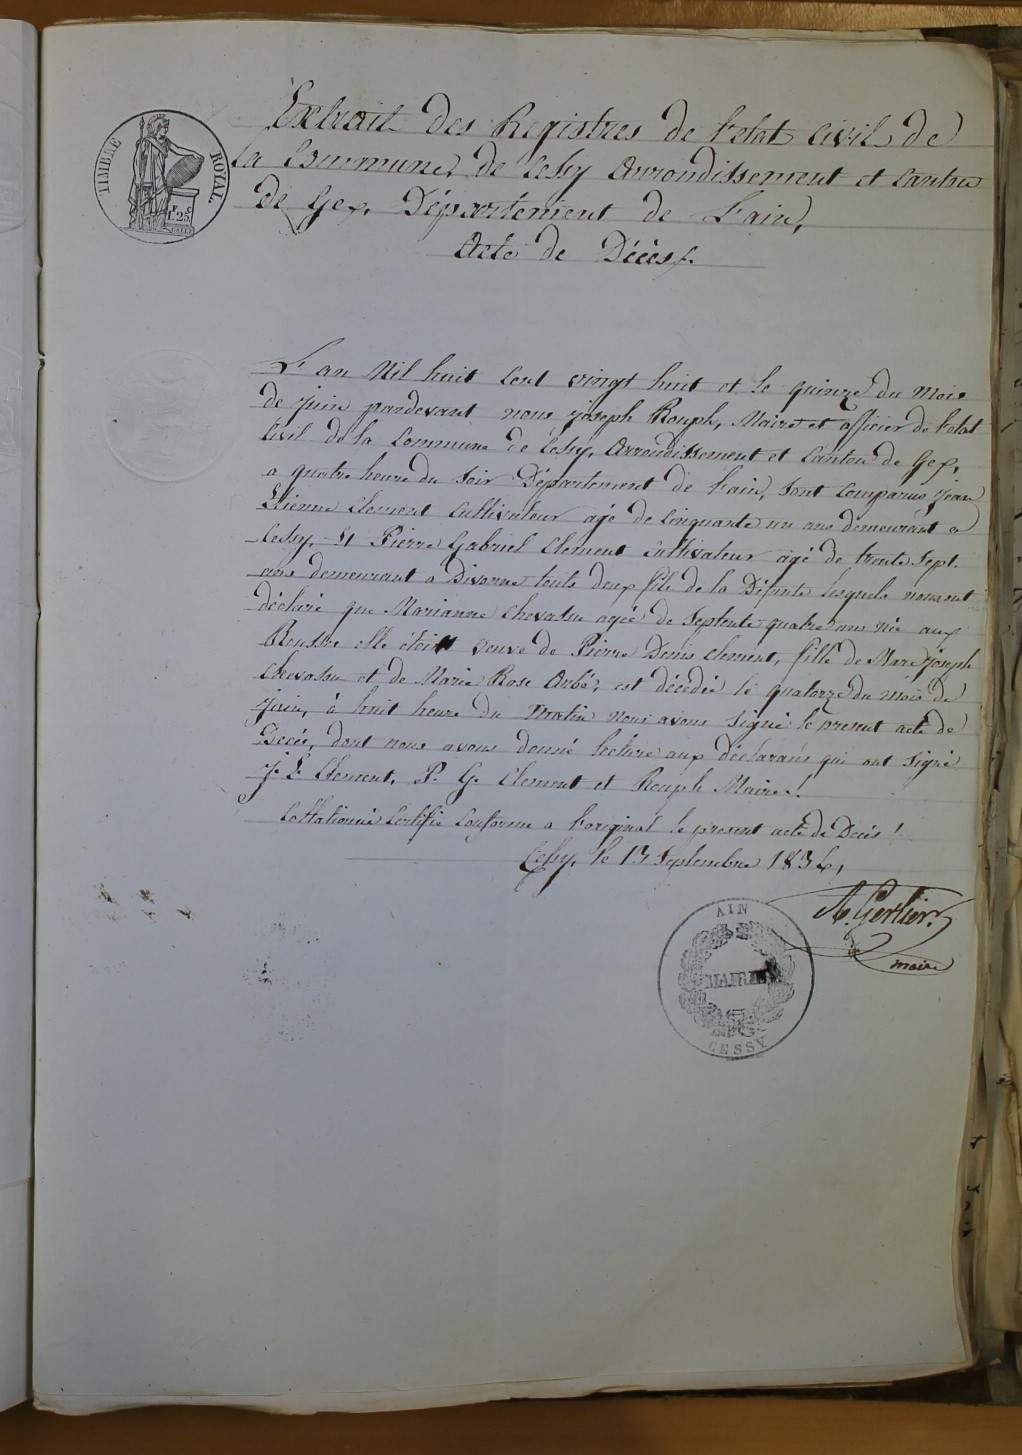 TIMBRE ROYAL
F. C.
1. 25
Extrait des Registres de l'etat civil de
la Commune, de Cessy Arrondissement et Canton
de Gex, Département de L'ain,
Acte de Décès.
L'an Mil huit Cent vingt huit et le quinze du Mois
de Juin pardevant nous Joseph Rouph, Maire et officier de l'etat
Civil de la Commune de Cessy, Arrondissement et Canton de Gex,
a quatre heure du Soir Département de L'ain, Sont Comparus Jean
Etienne Clement Cultivateur agé de Cinquante un ans demeurant a
Cessy, Et Pierre Gabriel Clement Cultivateur agé de trente Sept
ans demeurant a Divonne touts deux fils de la Défunte lesquels nous ont
déclaré que Marianne Chevassu agée de Septente quatre ans Née aux
Rousse elle étoit veuve de Pierre Denis Clement, fille de Marc Joseph
Chevassu et de Marie Rose Arbé, est décédée le quatorze du Mois de
Juin, à huit heure du Matin Nous avons Signé le present acte de
Décès, dont nous avons donné lecture aux déclarans qui ont Signé
J. E. Clement, P. G. Clement et Rouph Maire.
Collationné Certifié Conforme a l'original le present acte de Decès!
Cessy, le 13 Septembre 1836,
A. Gerlier
maire
AIN
MAIRIE
CESSY